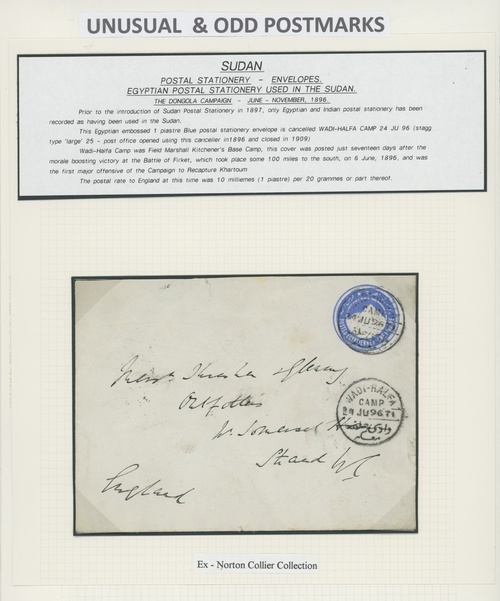 UNUSUAL & ODD POSTMARKS
SUDAN
POSTAL STATIONERY - ENVELOPES.
EGYPTIAN POSTAL STATIONERY USED IN THE SUDAN.
THE DONGOLA CAMPAIGN - JUNE - NOVEMBER, 1896.
Prior to the introduction of Sudan Postal Stationery in 1897, only Egyptian and Indian postal stationery has been
recorded as having been used in the Sudan.
This Egyptian embossed 1 piastre Blue postal stationery envelope is cancelled WADI-HALFA CAMP 24 JU 96 (stagg
type 'large' 25 - post office opened using this canceller in1896 and closed in 1909)
Wadi-Halfa Camp was Field Marshall Kitchener's Base Camp, this cover was posted just seventeen days after the
morale boosting victory at the Battle of Firket, which took place some 100 miles to the south, on 6 June, 1896, and was
the first major offensive of the Campaign to Recapture Khartoum
The postal rate to England at this time was 10 milliemes (1 piastre) per 20 grammes or part thereof.
CAMP
24 JU 96
Messrs Thresher & Glenny
Outfitters
WADI-HALFA
CAMP
24 JU 96 T1
وادى حلفا
Somerset House
Strand WC
England
Ex - Norton Collier Collection